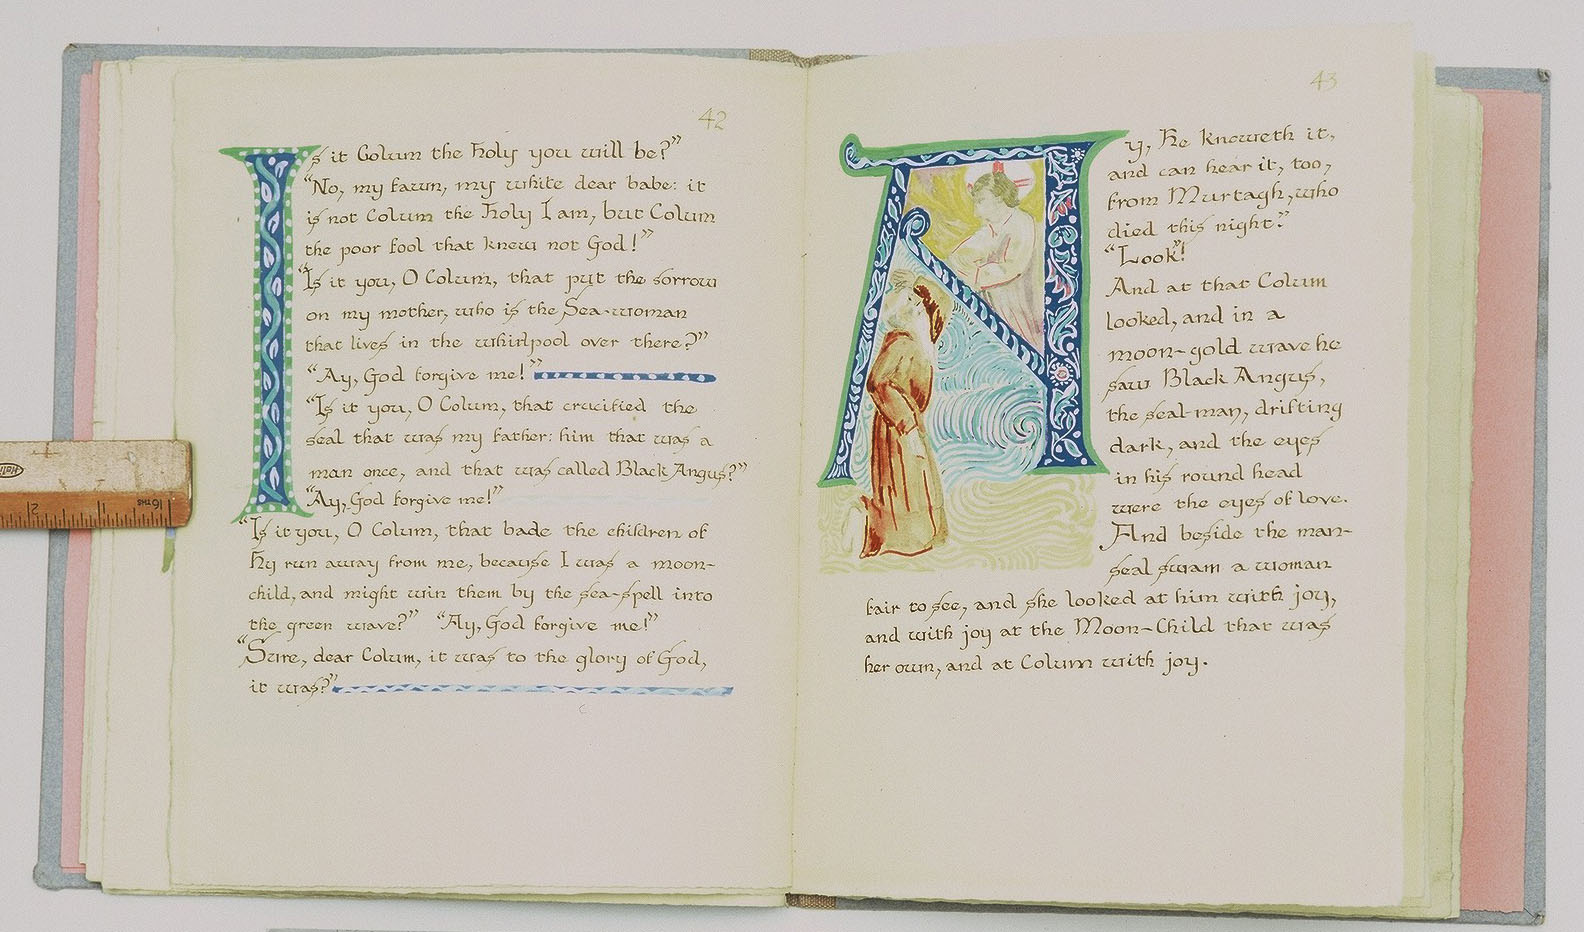 42
Is it Colum the Holy you will be?”
“No, my fawn, my white dear babe: it
is not Colum the Holy I am, but Colum
the poor fool that knew not God!”
“Is it you, O Colum, that put the sorrow
on my mother, who is the Sea-woman
that lives in the whirlpool over there?”
“Ay, God forgive me!”
“Is it you, O Colum, that crucified the
seal that was my father: him that was a
man once, and that was called Black Angus?”
“Ay, God forgive me!”
“Is it you, O Colum, that bade the children of
Hy run away from me, because I was a moon-
child, and might win them by the sea-spell into
the green wave?” “Ay, God forgive me!”
“Sure, dear Colum, it was to the glory of God,
it was?”
43
Ay, He knoweth it,
and can hear it, too,
from Murtagh, who
died this night.”
“Look!”
And at that Colum
looked, and in a
moon-gold wave he
saw Black Angus,
the seal-man, drifting
dark, and the eyes
in his round head
were the eyes of love.
And beside the man-
seal swam a woman
fair to see, and she looked at him with joy,
and with joy at the Moon-Child that was
her own, and at Colum with joy.
2
1
16THS